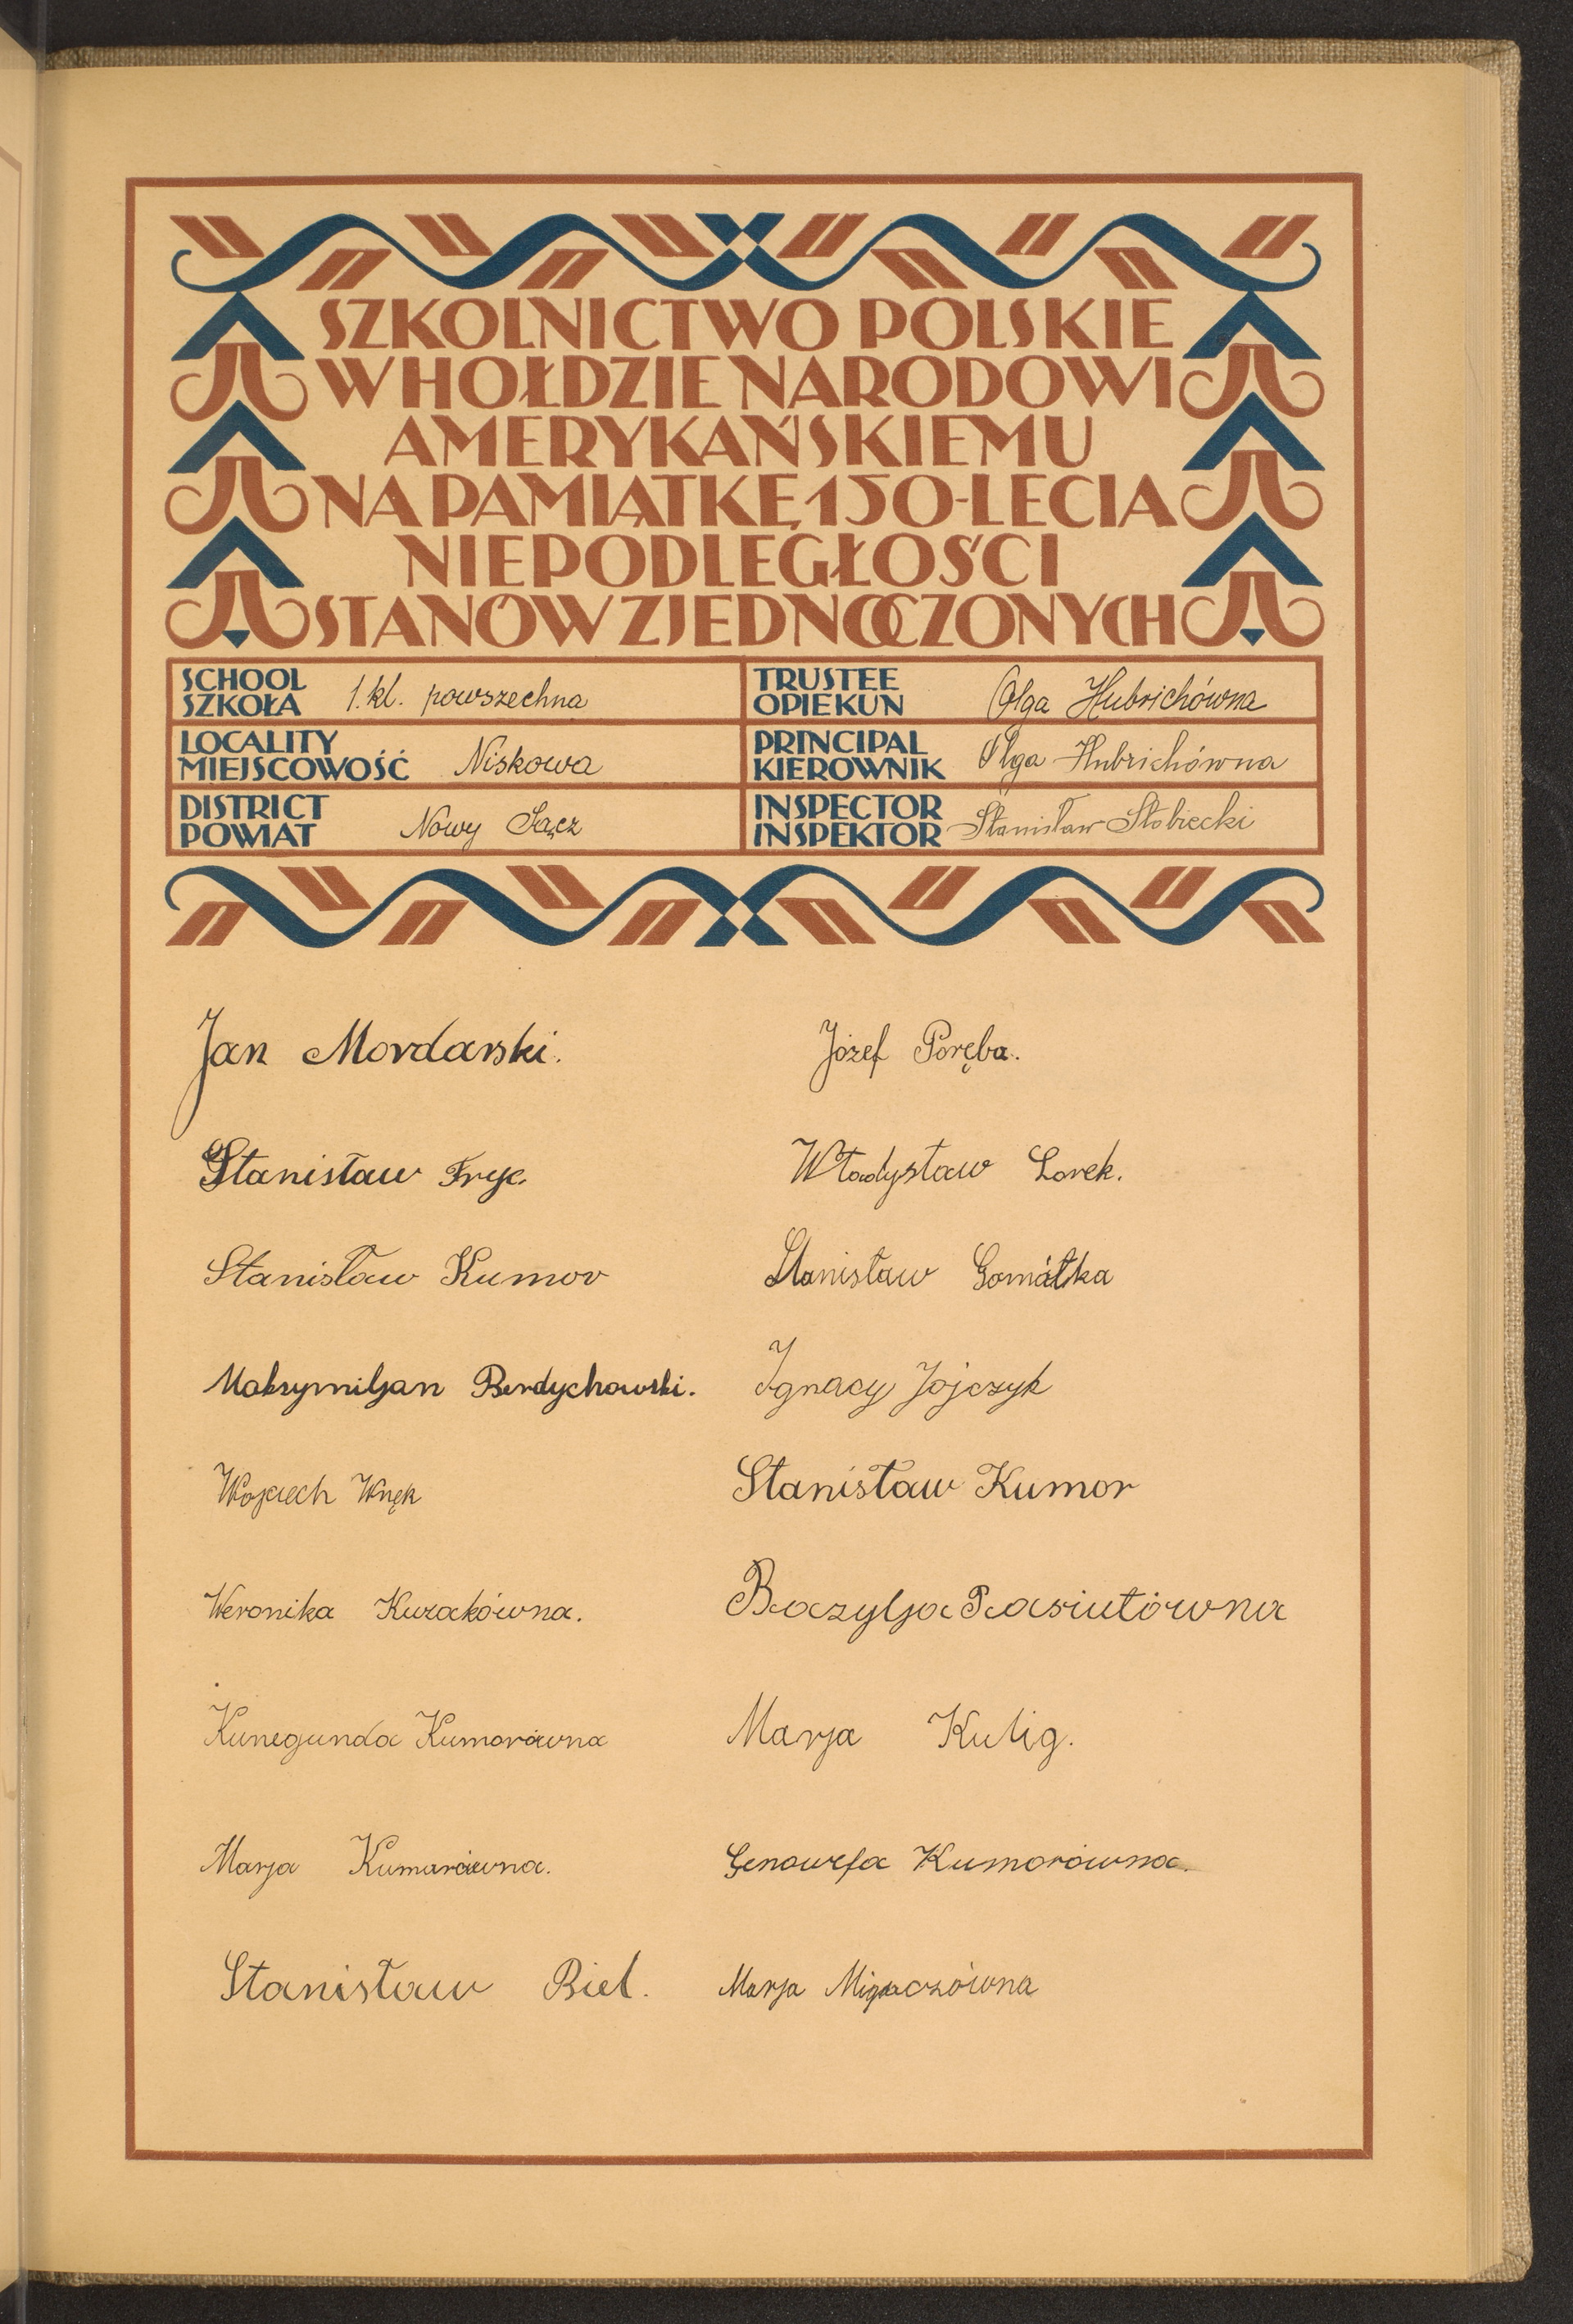 SZKOLNICTWO POLSKIE
W HOŁDZIE NARODOWI
AMERYKAŃSKIEMU
NA PAMIĄTKĘ 150-LECIA
NIEPODLEGŁOŚCI
STANÓW ZJEDNOCZONYCH
SCHOOL
SZKOŁA 1. kl. powszechna
TRUSTEE
OPIEKUN Olga Hubrichówna
LOCALITY
MIEJSCOWOŚĆ Niskowa
PRINCIPAL
KIEROWNIK Olga Hubrichówna
DISTRICT
POWIAT Nowy Sącz
INSPECTOR
INSPEKTOR Stanisław Słobiecki
Jan Mordarski.
Stanisław Fryc.
Stanisław Kumor
Maksymiljan Berdychowski.
Wojciech Wnęk
Weronika Kuzakówna.
Kunegunda Kumorówna
Marja Kumorówna.
Stanisław Biel.
Józef Poręba.
Władysław Lorek.
Stanisław Gomółka
Ignacy Jojczyk
Stanisław Kumor
Bazylja Pasiutówna
Marja Kulig.
Genowefa Kumorówna.
Marja Migaczówna